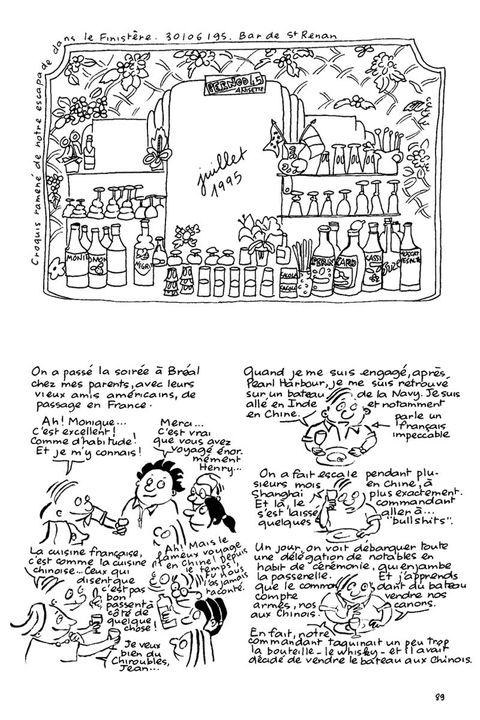 Croquis ramené de notre escapade dans le Finistère. 30106195. Bar de St Renan
PERNOD 45
ANISETTE
juillet
1995
On a passé la soirée à Bréal
chez mes parents, avec leurs
vieux amis américains, de
passage en France.
Ah! Monique...
C'est excellent!
Comme d'habitude!
Et je m'y connais!
Merci...
C'est vrai
que vous avez
voyagé énor-
mément
Henry...
La cuisine française,
c'est comme la cuisine
chinoise... Ceux qui
disent que
c'est pas
bon
passent à
côté de
quelque
chose!
Ah! Mais le
fameux voyage
en Chine! Depuis
le temps!
Tu nous
l'as jamais
raconté.
Je veux
bien du
Chiroubles,
Jean...
Quand je me suis engagé, après
Pearl Harbour, je me suis retrouvé
sur un bateau de la Navy. Je suis
allé en Inde et notamment
en Chine.
parle un
français
impeccable
On a fait escale pendant plu-
sieurs mois en Chine, à
Shanghai plus exactement.
Et là, le commandant
s'est laissé aller à...
quelques "bullshits".
Un jour, on voit débarquer toute
une délégation de notables en
habit de cérémonie, qui enjambe
la passerelle. Et j'apprends
que le commandant du bateau
compte vendre nos
armes, nos canons.
aux Chinois.
En fait, notre
commandant taquinait un peu trop
la bouteille - le whisky - et il avait
décidé de vendre le bateau aux Chinois.
89